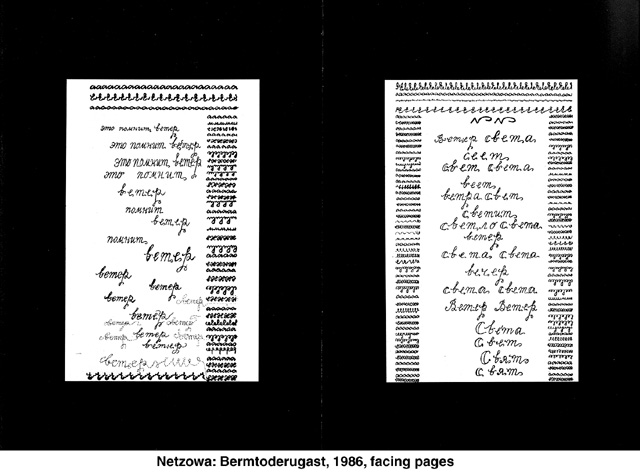 это помнит ветер
это помнит ветер
Это помнит ветер
это помнит
ветер
помнит
ветер
помнит
ветер
ветер
ветер
ветер ветер
ветер
ветер ветер
ветер ветер ветер
ветер
ветер
Ветер света
свет
свет света
веет
ветра свет
светит
светло света
ветер
света, света
вечер
света, света
Ветер Ветер
Света
Свет
Свят
свят
Netzowa: Bermtoderugast, 1986, facing pages